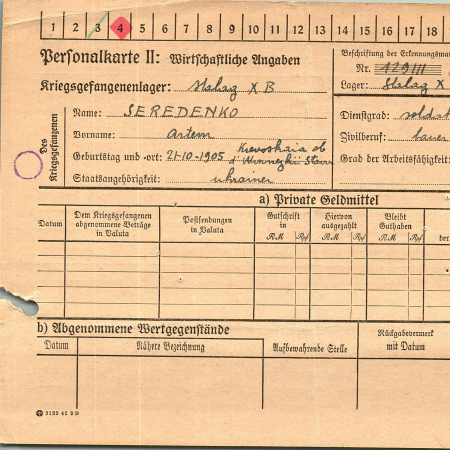 1 2 3 4 5 6 7 8 9 10 11 12 13 14 15 16 17 18
Personalkarte II: Wirtschaftliche Angaben
Beschriftung der Erkennungsma
Nr. 129111
Kriegsgefangenenlager: Stalag X B
Lager: Stalag X
Des Kriegsgefangenen
Name: SEREDENKO
Vorname: Artem
Geburtstag und -ort: 21-10-1905
Staatsangehörigkeit: Ukrainer
Dienstgrad: soldat
Zivilberuf: bauer
Grad der Arbeitsfähigkeit:
a) Private Geldmittel
Datum
Dem Kriegsgefangenen abgenommene Beträge in Valuta
Postsendungen in Valuta
Gutschrift in
RM Rpf
Hiervon ausgezahlt
RM Rpf
Bleibt Guthaben
RM Rpf
der
b) Abgenommene Wertgegenstände
Datum
Nähere Bezeichnung
Aufbewahrende Stelle
Rückgabevermerk mit Datum
3125 41 2D